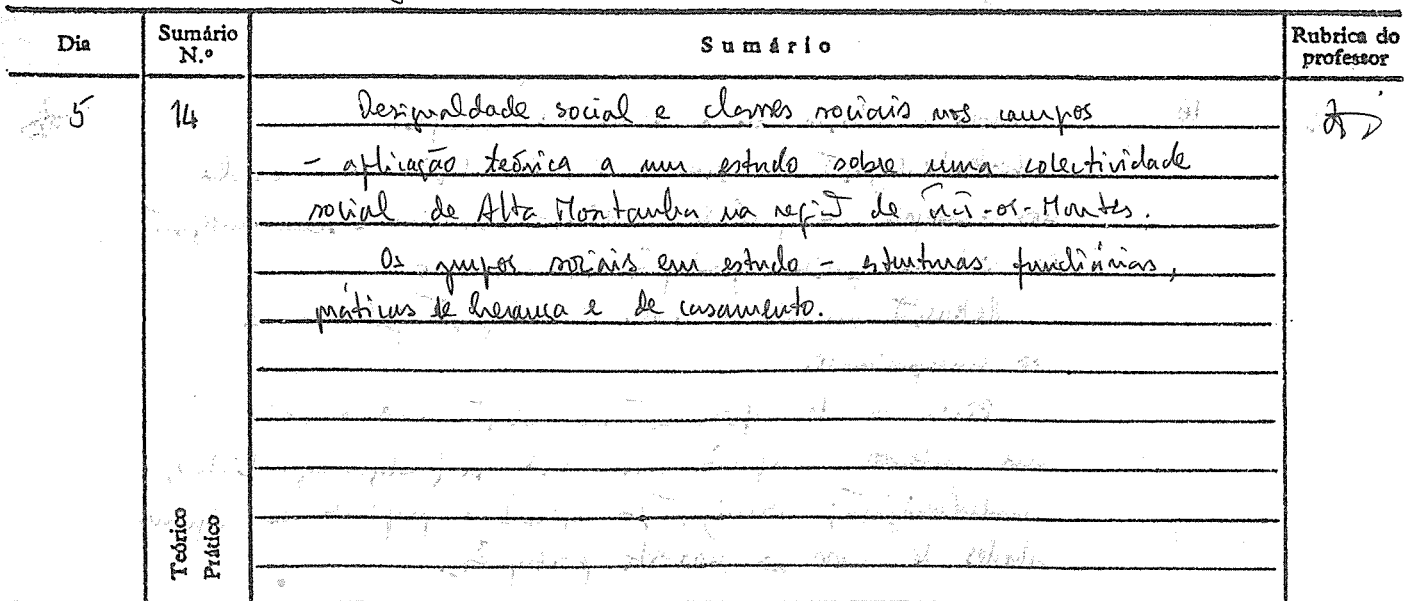 Dia
Sumário N.º
Sumário
Rubrica do professor
5
14
Desigualdade social e classes sociais nos campos
- aplicação teórica a um estudo sobre uma colectividade
social de Alta Montanha na região de Trás-os-Montes.
Os grupos sociais em estudo - estruturas fundiárias,
práticas de herança e de casamento.
Teórico
Prático